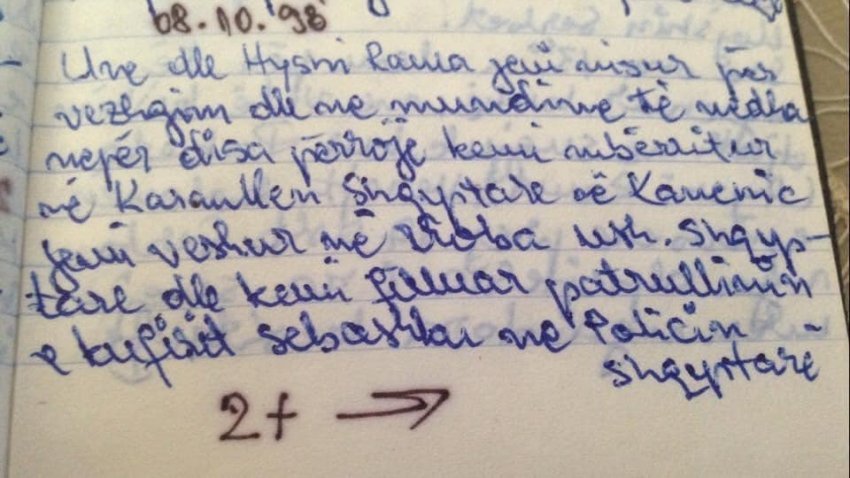 08.10.98
Une dhe Hysni Rama jemi nisur për
vezhgim dhe me mundime të mëdha
nepër disa përroje kemi mbërritur
në Karaullen Shqyptare në Kamenic
jemi veshur në rroba ush. Shqyp-
tare dhe kemi filluar patrullimin
e kufirit sebashku me Policin
shqyptare
2+ →